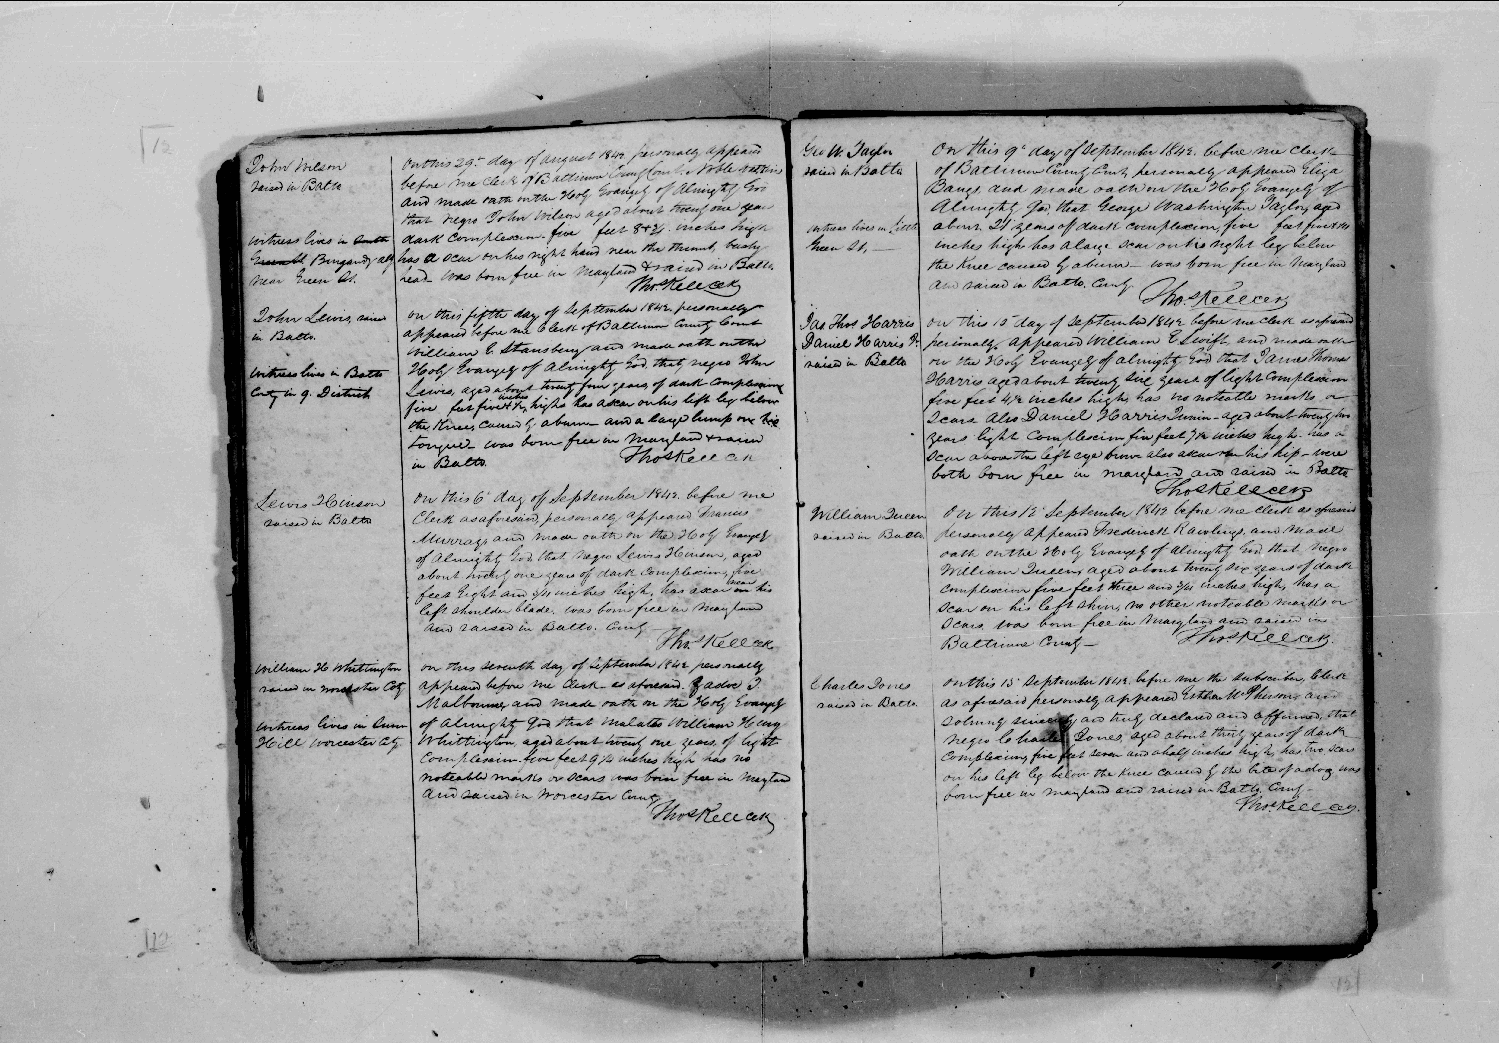 John Wilson
raised in Balto
witness lives in South
Green St Burgandy aly
near Green St.
On this 29th day of August 1842 personally appeared
before me Clerk of Baltimore County Court Noble
and made oath on the Holy Evangely of Almighty God
that negro John Wilson aged about twenty one year
dark Complexion five feet 8 + 3/4 inches high
has a scar on his right hand near the thumb, bushy
head was born free in Maryland & raised in Balto.
Thos Kell Clk
John Lewis, raised
in Balto.
Witness lives in Balto
Conty in 9. District
On this fifth day of September 1842, personally
appeared before me Clerk of Baltimore County Court
William E Stansbury and made oath on the
Holy Evangely of Almighty God that negro John
Lewis, aged about twenty four years, of dark complexion
five feet five + inches high has a scar on his left leg below
the Knee, caused by a burn and a large lump on his
tongue was born free in Maryland & raised
in Balto.
Thos Kell Clk
Lewis Hinson
raised in Balto
On this 6th day of September 1842. before me
Clerk as aforesaid, personally appeared Francis
Murray, and made oath on the Holy Evangely
of Almighty God that Negro Lewis Hinson, aged
about twenty one years of dark complexion, five
feet Eight and inches high, has a scar near on his
left shoulder blade. was born free in Maryland
and raised in Balto. County
Thos Kell Clk
William H Whittington
raised in Worcester Coty
Witness lives in Snow
Hill Worcester Cty
On this seventh day of September 1842 personally
appeared before me Clerk as aforesaid. Zadoc J.
Malbourne, and made oath on the Holy Evangely
of Almighty God that Mulatto William Henry
Whittington, aged about twenty one years, of light
Complexion five feet 9 1/2 inches high has no
noteable marks or scars was born free in Maryland
and raised in Worcester County
Thos Kell Clk
Geo W. Taylor
raised in Balto
witness lives in Little
Green St,
On this 9th day of September 1842. before me Clerk
of Baltimore County Court personally appeared Eliza
Bangs and made oath on the Holy Evangely of
Almighty God, that George Washington Taylor, aged
about 21 years of dark complexion, five feet five
inches high has a large scar on his right leg below
the Knee caused by a burn was born free in Maryland
and raised in Balto. County
Thos Kell Clk
Jas Thos Harris
Daniel Harris
raised in Balto
On this 15th day of September 1842 before me Clerk as aforesaid
personally appeared William E Swift, and made oath
on the Holy Evangely of Almighty God that James Thomas
Harris aged about twenty five years of light Complexion
five feet 4 1/2 inches high, has no noteable marks or
scars Also Daniel Harris aged about twenty two
years light complexion five feet inches high has a
scar above the left eye brow also a scar on his hip were
both born free in Maryland and raised in Balto
Thos Kell Clk
William Queen
raised in Balto
On this September 1842 before me Clerk as aforesaid
personally appeared Frederick Rawlings and made
oath on the Holy Evangely of Almighty God that Negro
William Queen, aged about twenty six years of dark
complexion five feet three and inches high, has a
scar on his left shin, no other noteable marks or
scars was born free in Maryland and raised in
Baltimore County
Thos Kell Clk.
Charles Jones
raised in Balto
On this 15th September 1842. before me the subscriber, Clerk
as aforesaid personally appeared Esther McPherson and
solemnly sincerely and truly declared and affirmed, that
negro Charles Jones, aged about thirty years of dark
complexion, five feet seven and a half inches high, has two scars
on his left leg below the Knee caused by the bite of a dog was
born free in Maryland and raised in Balto County
Thos. Kell Clk.